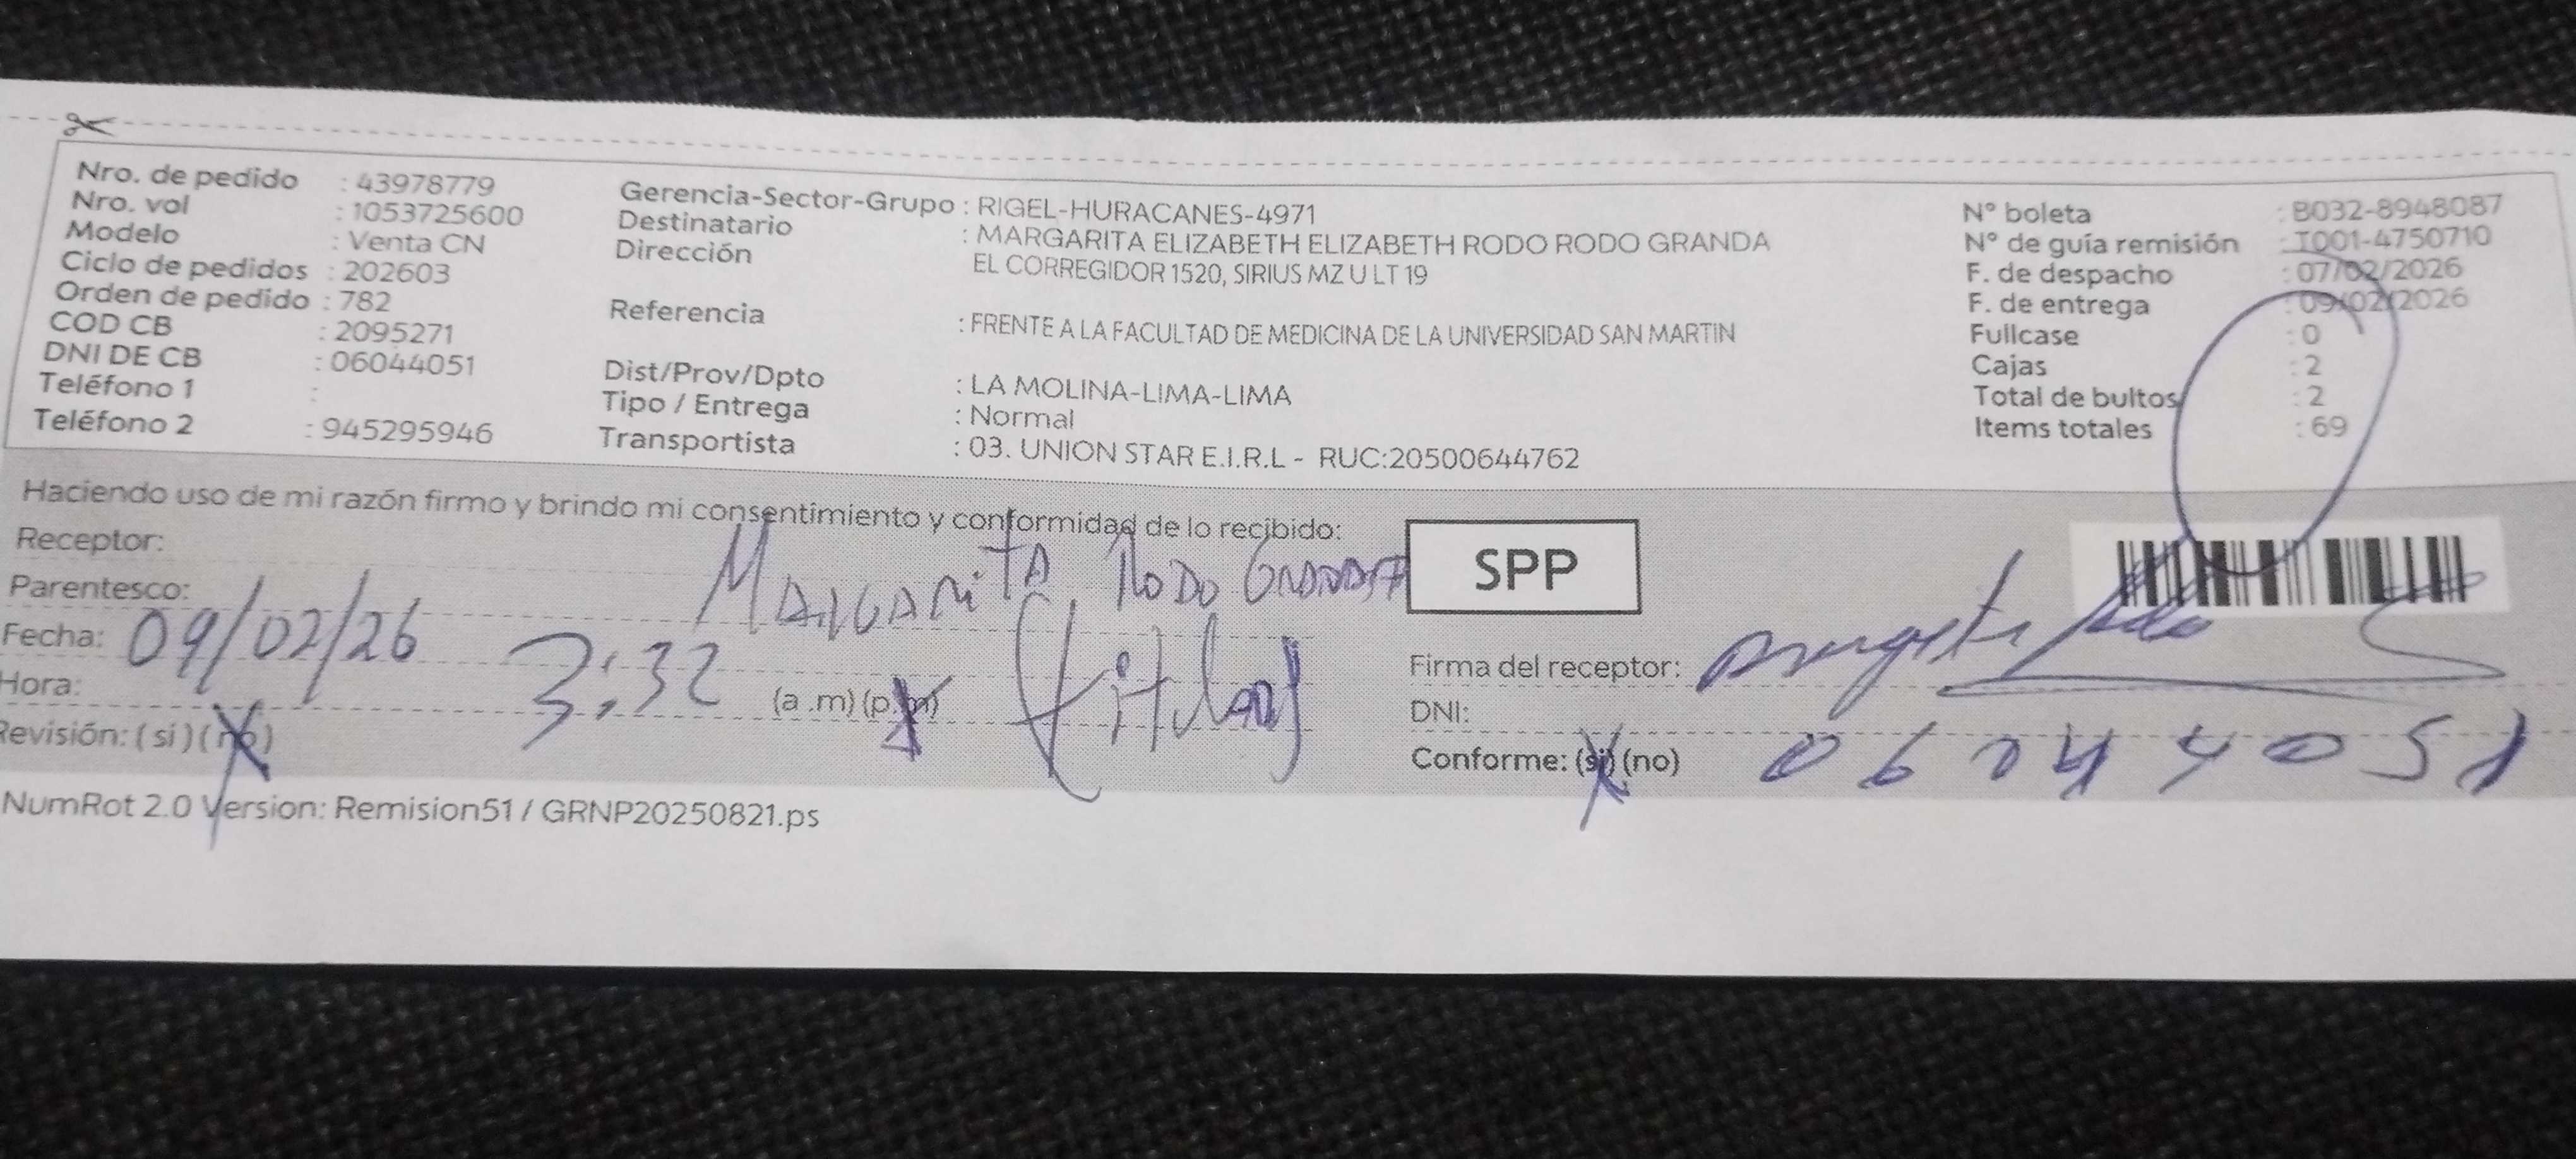 Nro. de pedido : 43978779
Nro. vol : 1053725600
Modelo : Venta CN
Ciclo de pedidos : 202603
Orden de pedido : 782
COD CB : 2095271
DNI DE CB : 06044051
Teléfono 1 :
Teléfono 2 : 945295946
Gerencia-Sector-Grupo : RIGEL-HURACANES-4971
Destinatario : MARGARITA ELIZABETH ELIZABETH RODO RODO GRANDA
Dirección EL CORREGIDOR 1520, SIRIUS MZ U LT 19
Referencia : FRENTE A LA FACULTAD DE MEDICINA DE LA UNIVERSIDAD SAN MARTIN
Dist/Prov/Dpto : LA MOLINA-LIMA-LIMA
Tipo / Entrega : Normal
Transportista : 03. UNION STAR E.I.R.L - RUC:20500644762
N° boleta : B032-8948087
N° de guía remisión : T001-4750710
F. de despacho : 07/02/2026
F. de entrega : 09/02/2026
Fullcase : 0
Cajas : 2
Total de bultos : 2
Items totales : 69
Haciendo uso de mi razón firmo y brindo mi consentimiento y conformidad de lo recibido:
Receptor: MARGARITA RODO GRANDA
Parentesco: (titular)
Fecha: 09/02/26
Hora: 3:32 (a .m) (p.m)
Revisión: ( si ) ( no )
SPP
Firma del receptor:
DNI: 06044051
Conforme: (si) (no)
NumRot 2.0 Version: Remision51 / GRNP20250821.ps